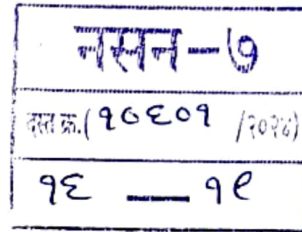 नसन-७
दस्त क्र.(१०६०१ /२०२४)
१६ — १९